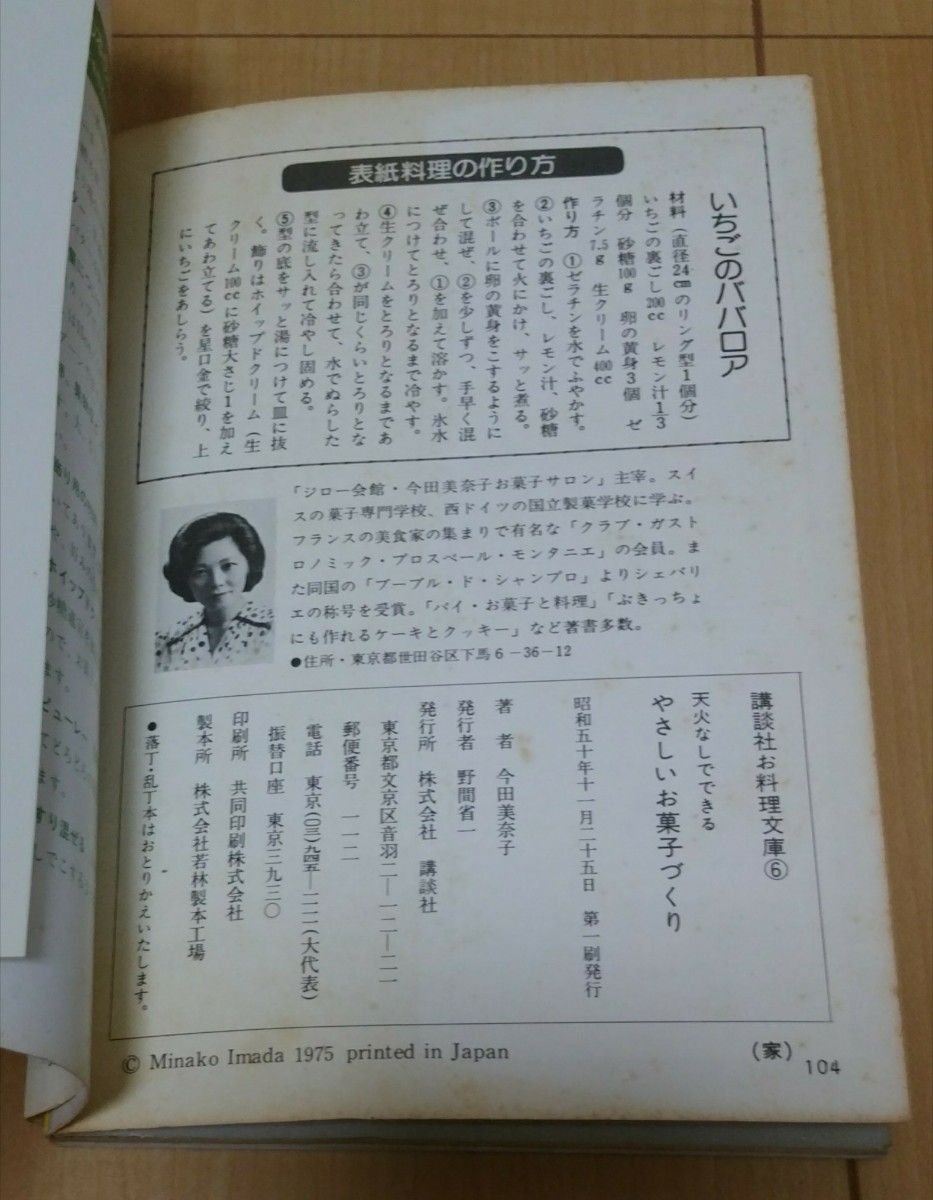 表紙料理の作り方
いちごのババロア
材料（直径24㎝のリング型1個分）
いちごの裏ごし200cc　レモン汁1/3
個分　砂糖100g　卵の黄身3個　ゼ
ラチン7.5g　生クリーム400cc
作り方　①ゼラチンを水でふやかす。
②いちごの裏ごし、レモン汁、砂糖
を合わせて火にかけ、サッと煮る。
③ボールに卵の黄身をこするように
して混ぜ、②を少しずつ、手早く混
ぜ合わせ、①を加えて溶かす。氷水
につけてとろりとなるまで冷やす。
④生クリームをとろりとなるまであ
わ立て、③が同じくらいとろりとな
ってきたら合わせて、水でぬらした
型に流し入れて冷やし固める。
⑤型の底をサッと湯につけて皿に抜
く。飾りはホイップドクリーム（生
クリーム100ccに砂糖大さじ1を加え
てあわ立てる）を星口金で絞り、上
にいちごをあしらう。
「ジロー会館・今田美奈子お菓子サロン」主宰。スイ
スの菓子専門学校、西ドイツの国立製菓学校に学ぶ。
フランスの美食家の集まりで有名な「クラブ・ガスト
ロノミック・プロスペール・モンタニエ」の会員。ま
た同国の「プープル・ド・シャンプロ」よりシェバリ
エの称号を受賞。「パイ・お菓子と料理」「ぶきっちょ
にも作れるケーキとクッキー」など著書多数。
●住所・東京都世田谷区下馬6－36－12
講談社お料理文庫⑥
天火なしでできる
やさしいお菓子づくり
昭和五十年十一月二十五日　第一刷発行
著　者　今田美奈子
発行者　野間省一
発行所　株式会社　講談社
東京都文京区音羽二―一二―二一
郵便番号　一一二
電話　東京(〇三)九四五―一一一一(大代表)
振替口座　東京三九三〇
印刷所　共同印刷株式会社
製本所　株式会社若林製本工場
●落丁・乱丁本はおとりかえいたします。
© Minako Imada 1975 printed in Japan
（家）
104